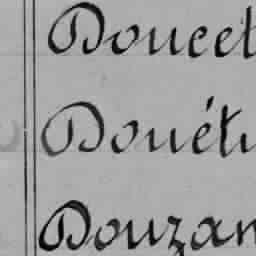 Doucet
Douét
Douzan